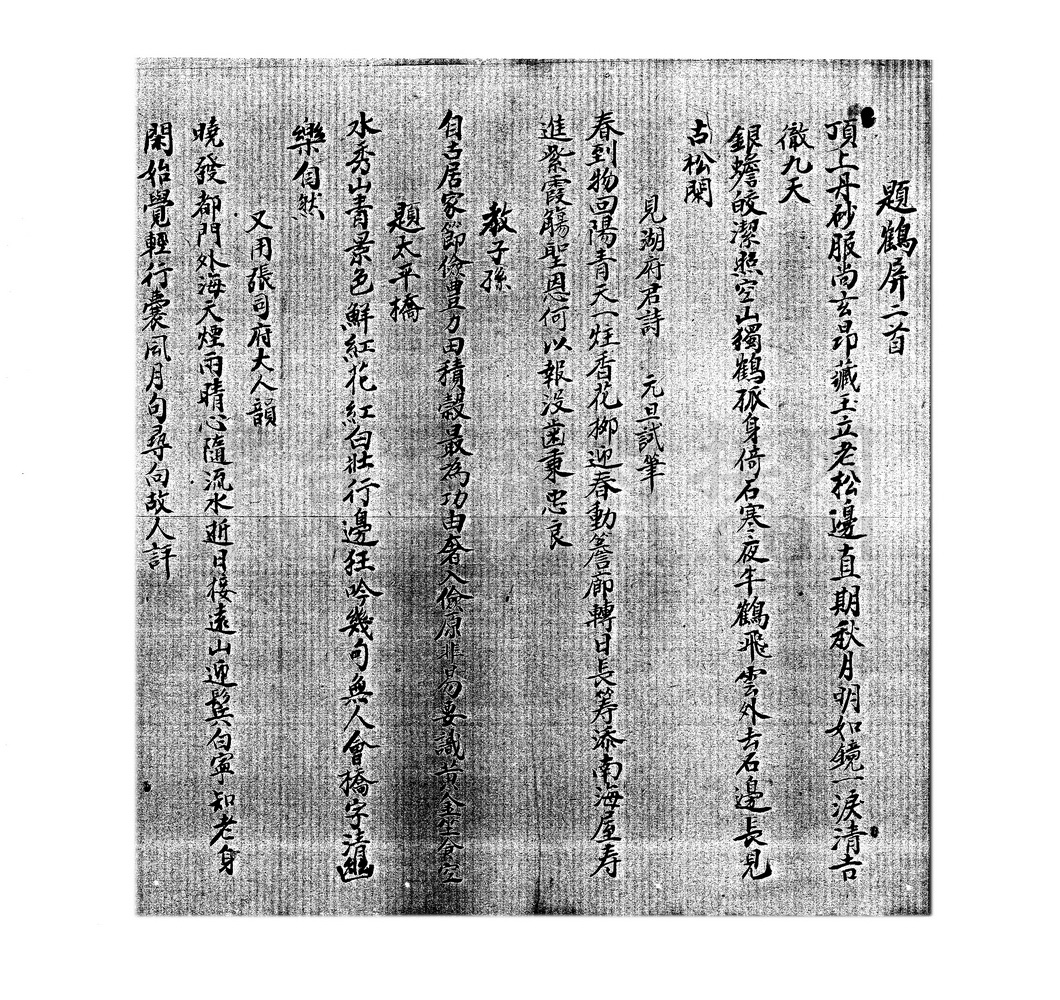 題鶴屏二首
頂上丹砂服尚玄昂藏玉立老松邊直期秋月明如鏡一淚清古
徹九天
銀蟾皎潔照空山獨鶴孤身倚石寒夜半鶴飛雲外去石邊長見
古松闌
見湖府君詩 元旦試筆
春到物回陽青天一炷香花柳迎春動簷廊轉日長筹添南海屋寿
進紫霞觴聖恩何以報沒歯秉忠良
教子孫
自古居家節儉豊力田積穀最為功由奢入儉原非易要識黄金坐食空
題太平橋
水秀山青景色鮮紅花紅白壯行邊狂吟幾句無人會橋字清幽
樂自然
又用張司府大人韻
曉發都門外海天煙雨晴心隨流水逝日接遠山迎鬂白寧知老身
閑始覺輕行囊風月句尋向故人評